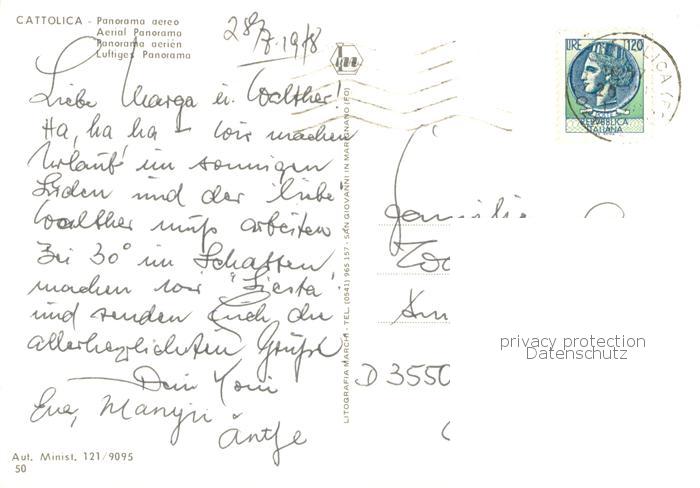 CATTOLICA - Panorama aereo
Aerial Panorama
Panorama aerien
Luftiges Panorama
28/7.1978
Liebe Marga u. Walther!
Ha, ha ha – wir machen
Urlaub im sonnigen
Süden und der liebe
Walther muß arbeiten
Bei 30° im Schatten
machen wir "Siesta"
und senden Euch die
allerherzlichsten Grüße
Dein Toni
Eva,
Antje
Aut. Minist. 121/9095
50
LITOGRAFIA MARCHI - TEL. (0541) 965 157 - SAN GIOVANNI IN MARIGNANO (FO)
LIRE 120
REPVBBLICA
ITALIANA
Familie
D 3550
privacy protection
Datenschutz